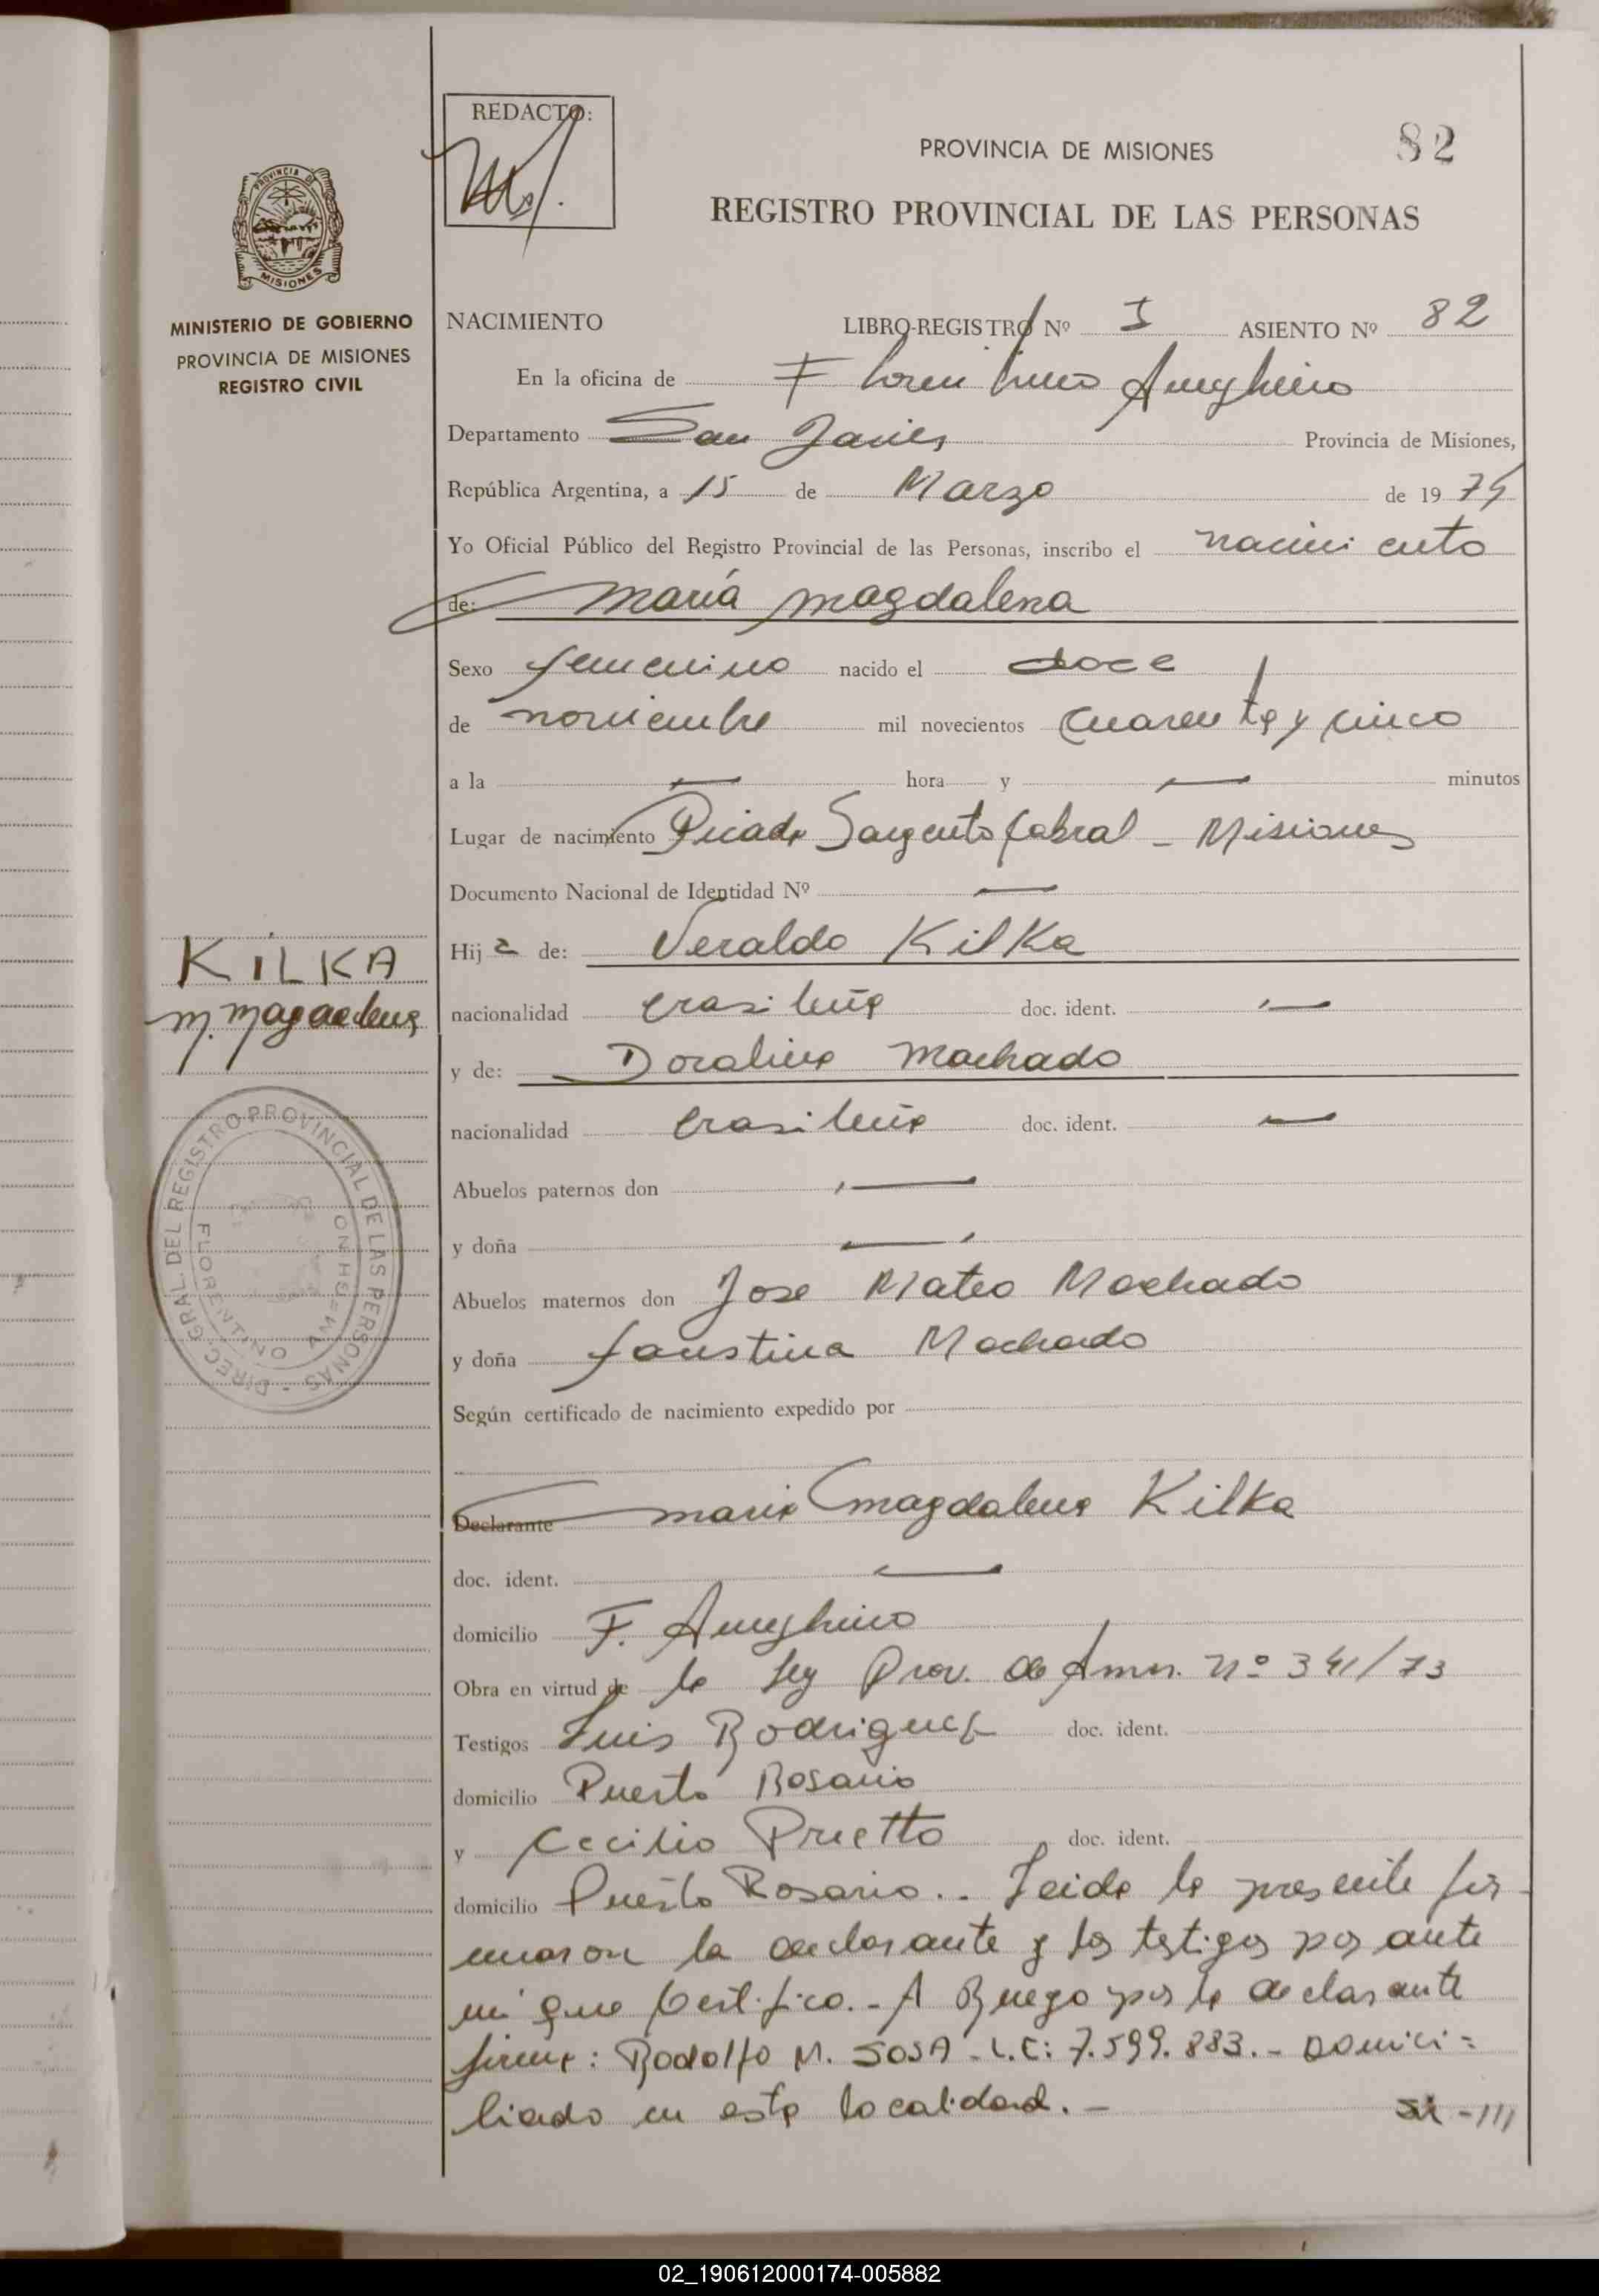 REDACTO:
PROVINCIA DE MISIONES
82
REGISTRO PROVINCIAL DE LAS PERSONAS
PROVINCIA DE
MISIONES
MINISTERIO DE GOBIERNO
PROVINCIA DE MISIONES
REGISTRO CIVIL
NACIMIENTO LIBRO-REGISTRO Nº I ASIENTO Nº 82
En la oficina de Florentino Ameghino
Departamento San Javier Provincia de Misiones,
República Argentina, a 15 de Marzo de 1975
Yo Oficial Público del Registro Provincial de las Personas, inscribo el nacimiento
de: María Magdalena
Sexo femenino nacido el doce
de noviembre mil novecientos cuarenta y cinco
a la — hora y — minutos
Lugar de nacimiento Picada Sargento Cabral - Misiones
Documento Nacional de Identidad Nº —
Hija de: Veraldo Kilka
nacionalidad brasileña doc. ident. —
y de: Doralina Machado
nacionalidad brasileña doc. ident. —
Abuelos paternos don —
y doña —
Abuelos maternos don Jose Mateo Machado
y doña Faustina Machado
Según certificado de nacimiento expedido por
Declarante maria magdalena Kilka
doc. ident. —
domicilio F. Ameghino
Obra en virtud de la Ley Prov. de Amn. nº 341/73
Testigos Luis Rodriguez doc. ident.
domicilio Puerto Rosario
y Cecilio Prietto doc. ident.
domicilio Puerto Rosario.. Leida la presente fir-
maron la declarante y los testigos por ante
mi que Certifico.- A Ruego por la declarante
firma: Rodolfo M. SOSA - L.E: 7.599.883.- Domici=
liado en esta localidad. -
-///
KILKA
M. Magdalena
DIREC. GRAL. DEL REGISTRO PROVINCIAL DE LAS PERSONAS
FLORENTINO AMEGHINO
02_190612000174-005882